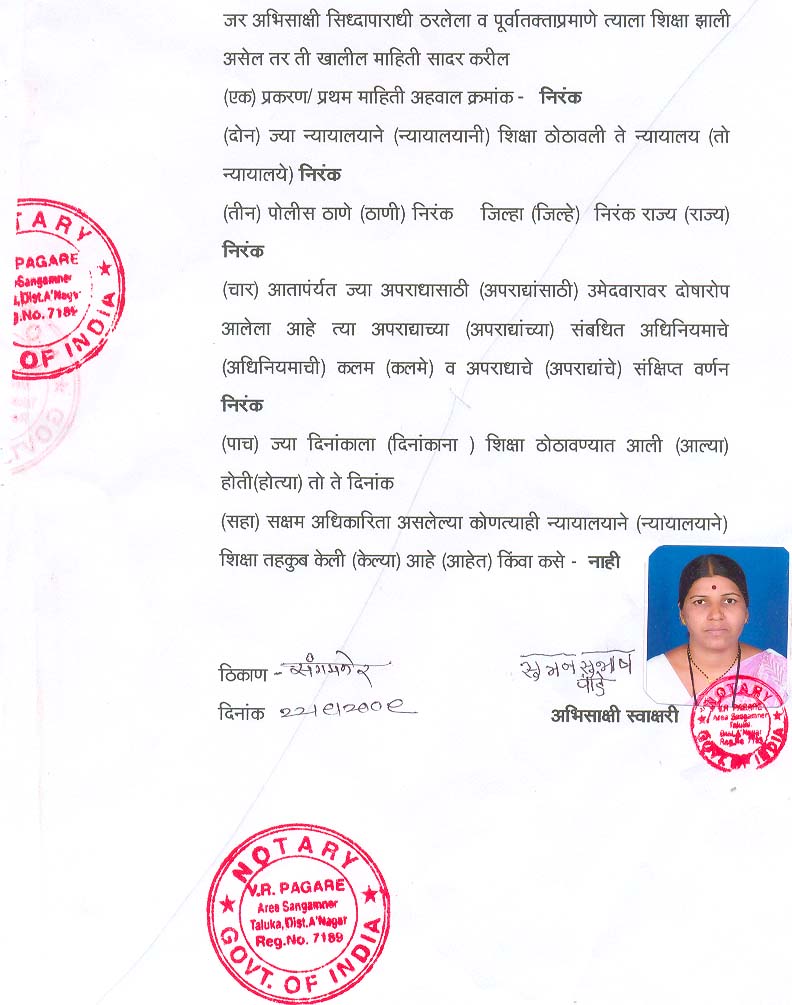 जर अभिसाक्षी सिध्दापाराधी ठरलेला व पूर्वातक्ताप्रमाणे त्याला शिक्षा झाली
असेल तर ती खालील माहिती सादर करील
(एक) प्रकरण/ प्रथम माहिती अहवाल क्रमांक - निरंक
(दोन) ज्या न्यायालयाने (न्यायालयानी) शिक्षा ठोठावली ते न्यायालय (तो
न्यायालये) निरंक
(तीन) पोलीस ठाणे (ठाणी) निरंक जिल्हा (जिल्हे) निरंक राज्य (राज्य)
निरंक
(चार) आतापंर्यत ज्या अपराधासाठी (अपराद्यांसाठी) उमेदवारावर दोषारोप
आलेला आहे त्या अपराद्याच्या (अपराद्यांच्या) संबधित अधिनियमाचे
(अधिनियमाची) कलम (कलमे) व अपराधाचे (अपराद्यांचे) संक्षिप्त वर्णन
निरंक
(पाच) ज्या दिनांकाला (दिनांकाना ) शिक्षा ठोठावण्यात आली (आल्या)
होती(होत्या) तो ते दिनांक
(सहा) सक्षम अधिकारिता असलेल्या कोणत्याही न्यायालयाने (न्यायालयाने)
शिक्षा तहकुब केली (केल्या) आहे (आहेत) किंवा कसे - नाही
ठिकाण - संगमनेर
सुमन सुभाष
दिनांक
अभिसाक्षी स्वाक्षरी
TARY
PAGARE
Sangamner
Dist.A'Nagar
g.No. 7189
OF INDIA
NOTARY
V.R. PAGARE
Area Sangamner
Taluka,
Dist.A'Nagar
Reg.No. 7189
GOVT. OF INDIA
NOTARY
V.R. PAGARE
Area Sangamner
Taluka,Dist.A'Nagar
Reg.No. 7189
GOVT. OF INDIA